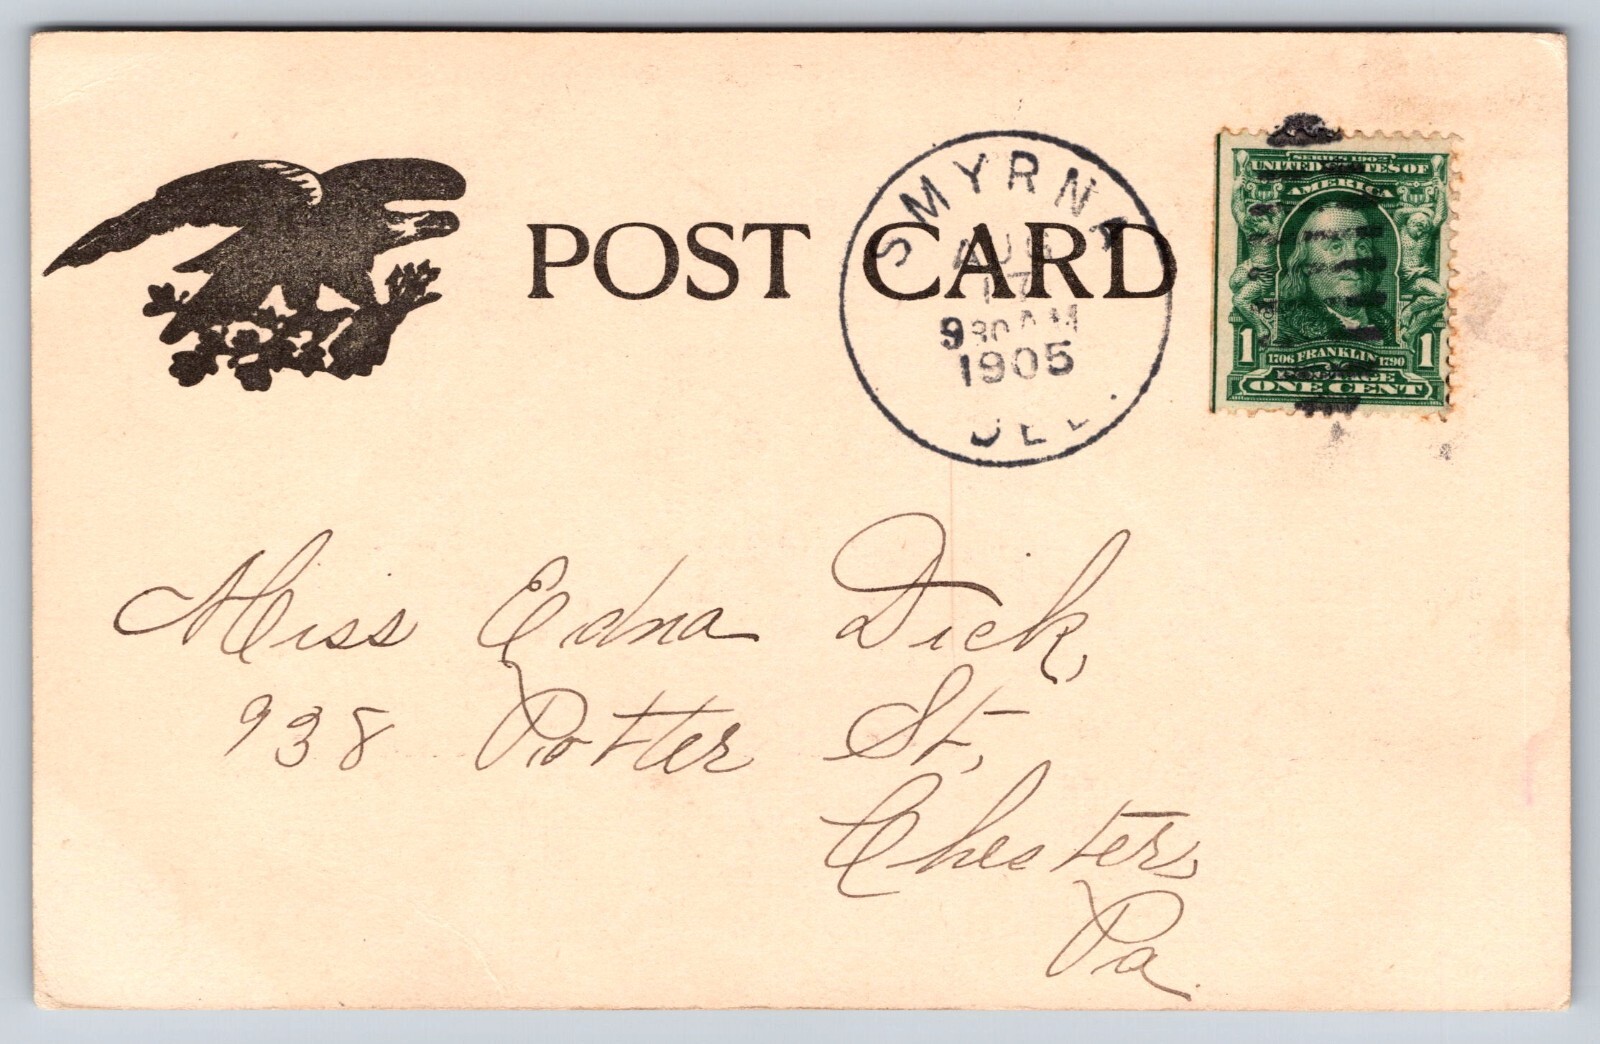 POST CARD
SMYRNA
AUG
17
930 AM
1905
DEL.
SERIES 1902
UNITED STATES OF
AMERICA
1 1706 FRANKLIN 1790 1
POSTAGE
ONE CENT
Miss Edna Dick,
938 Potter St,
Chester,
Pa.